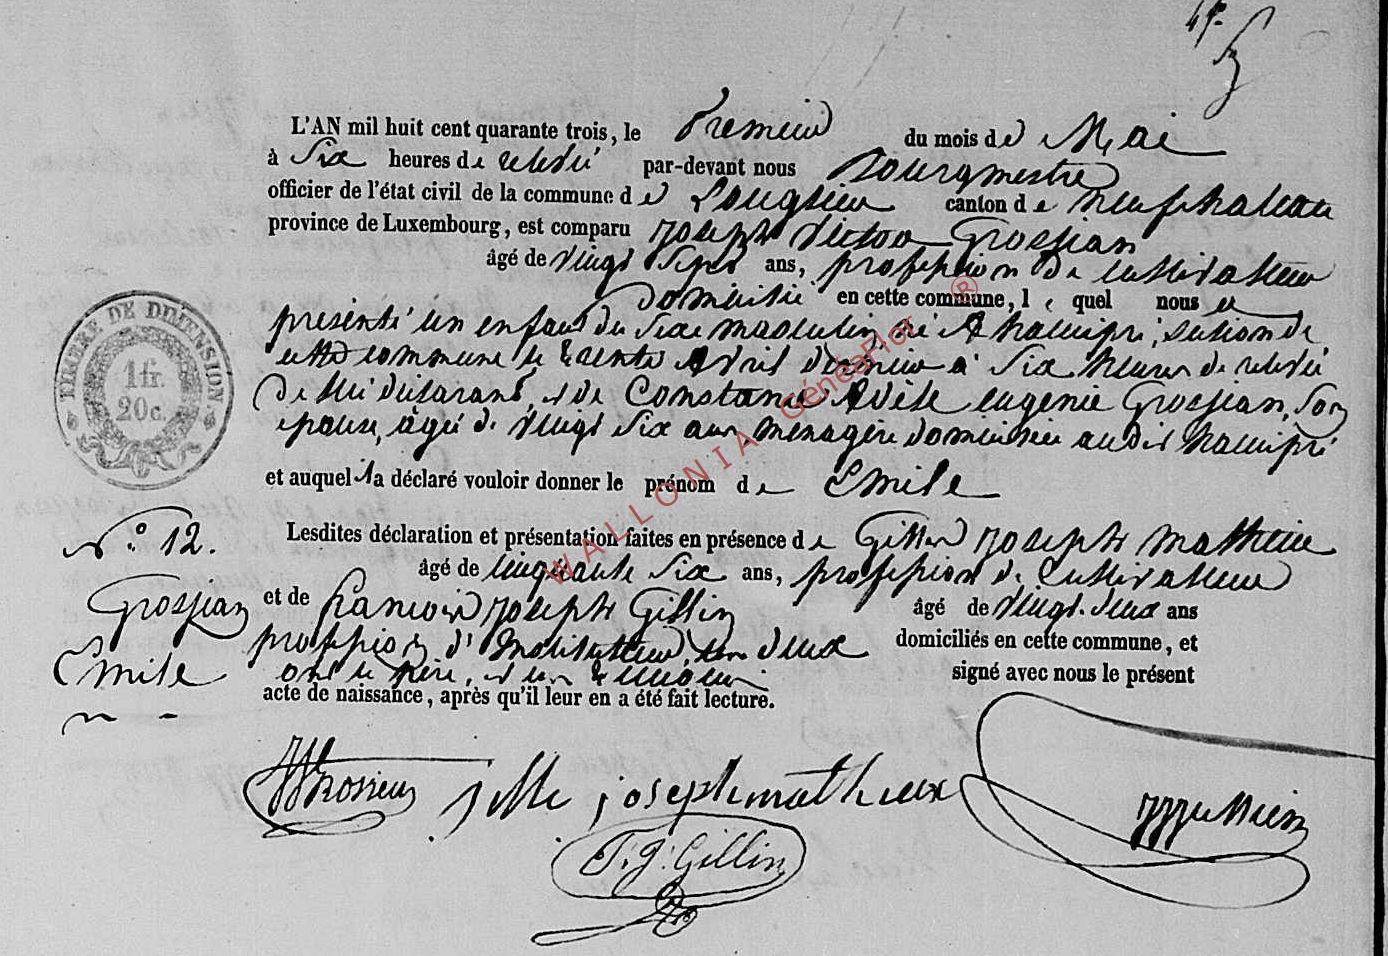 L'AN mil huit cent quarante trois, le Premier du mois de Mai
à Six heures de relevée par-devant nous Bourgmestre
officier de l'état civil de la commune de Longlier canton de neufchateau
province de Luxembourg, est comparu Joseph Victor Grosjean
âgé de vingt Sept ans, profession de cultivateur
Domicilié en cette commune, lequel nous a
présenté un enfant du Sexe masculin, né à hamipré, section de
cette commune le trente Avril dernier à Six heures de relevée
De lui déclarant, et de Constance Adèle eugenie Grosjean, Son
epouse, agée de vingt Six ans menagère domiciliée audit hamipré
et auquel il a déclaré vouloir donner le prénom de Emile
Lesdites déclaration et présentation faites en présence de Gillet Joseph mathieu
âgé de cinquante Six ans, profession de Cultivateur
et de francois Joseph Gillin âgé de vingt-deux ans
profession d'Instituteur, deux domiciliés en cette commune, et
ont le père, et les témoins signé avec nous le présent
acte de naissance, après qu'il leur en a été fait lecture.
N.° 12.
Grosjean
Emile
TIMBRE DE DIMENSION
1 fr.
20 c.
joseph mathieux
F. J. Gillin
WALLONIA GénéaFlor ®